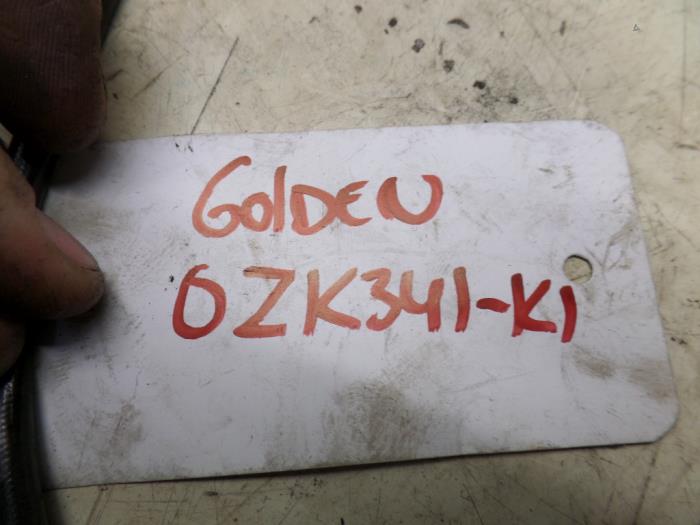 GOlDEN
OZK341-K1